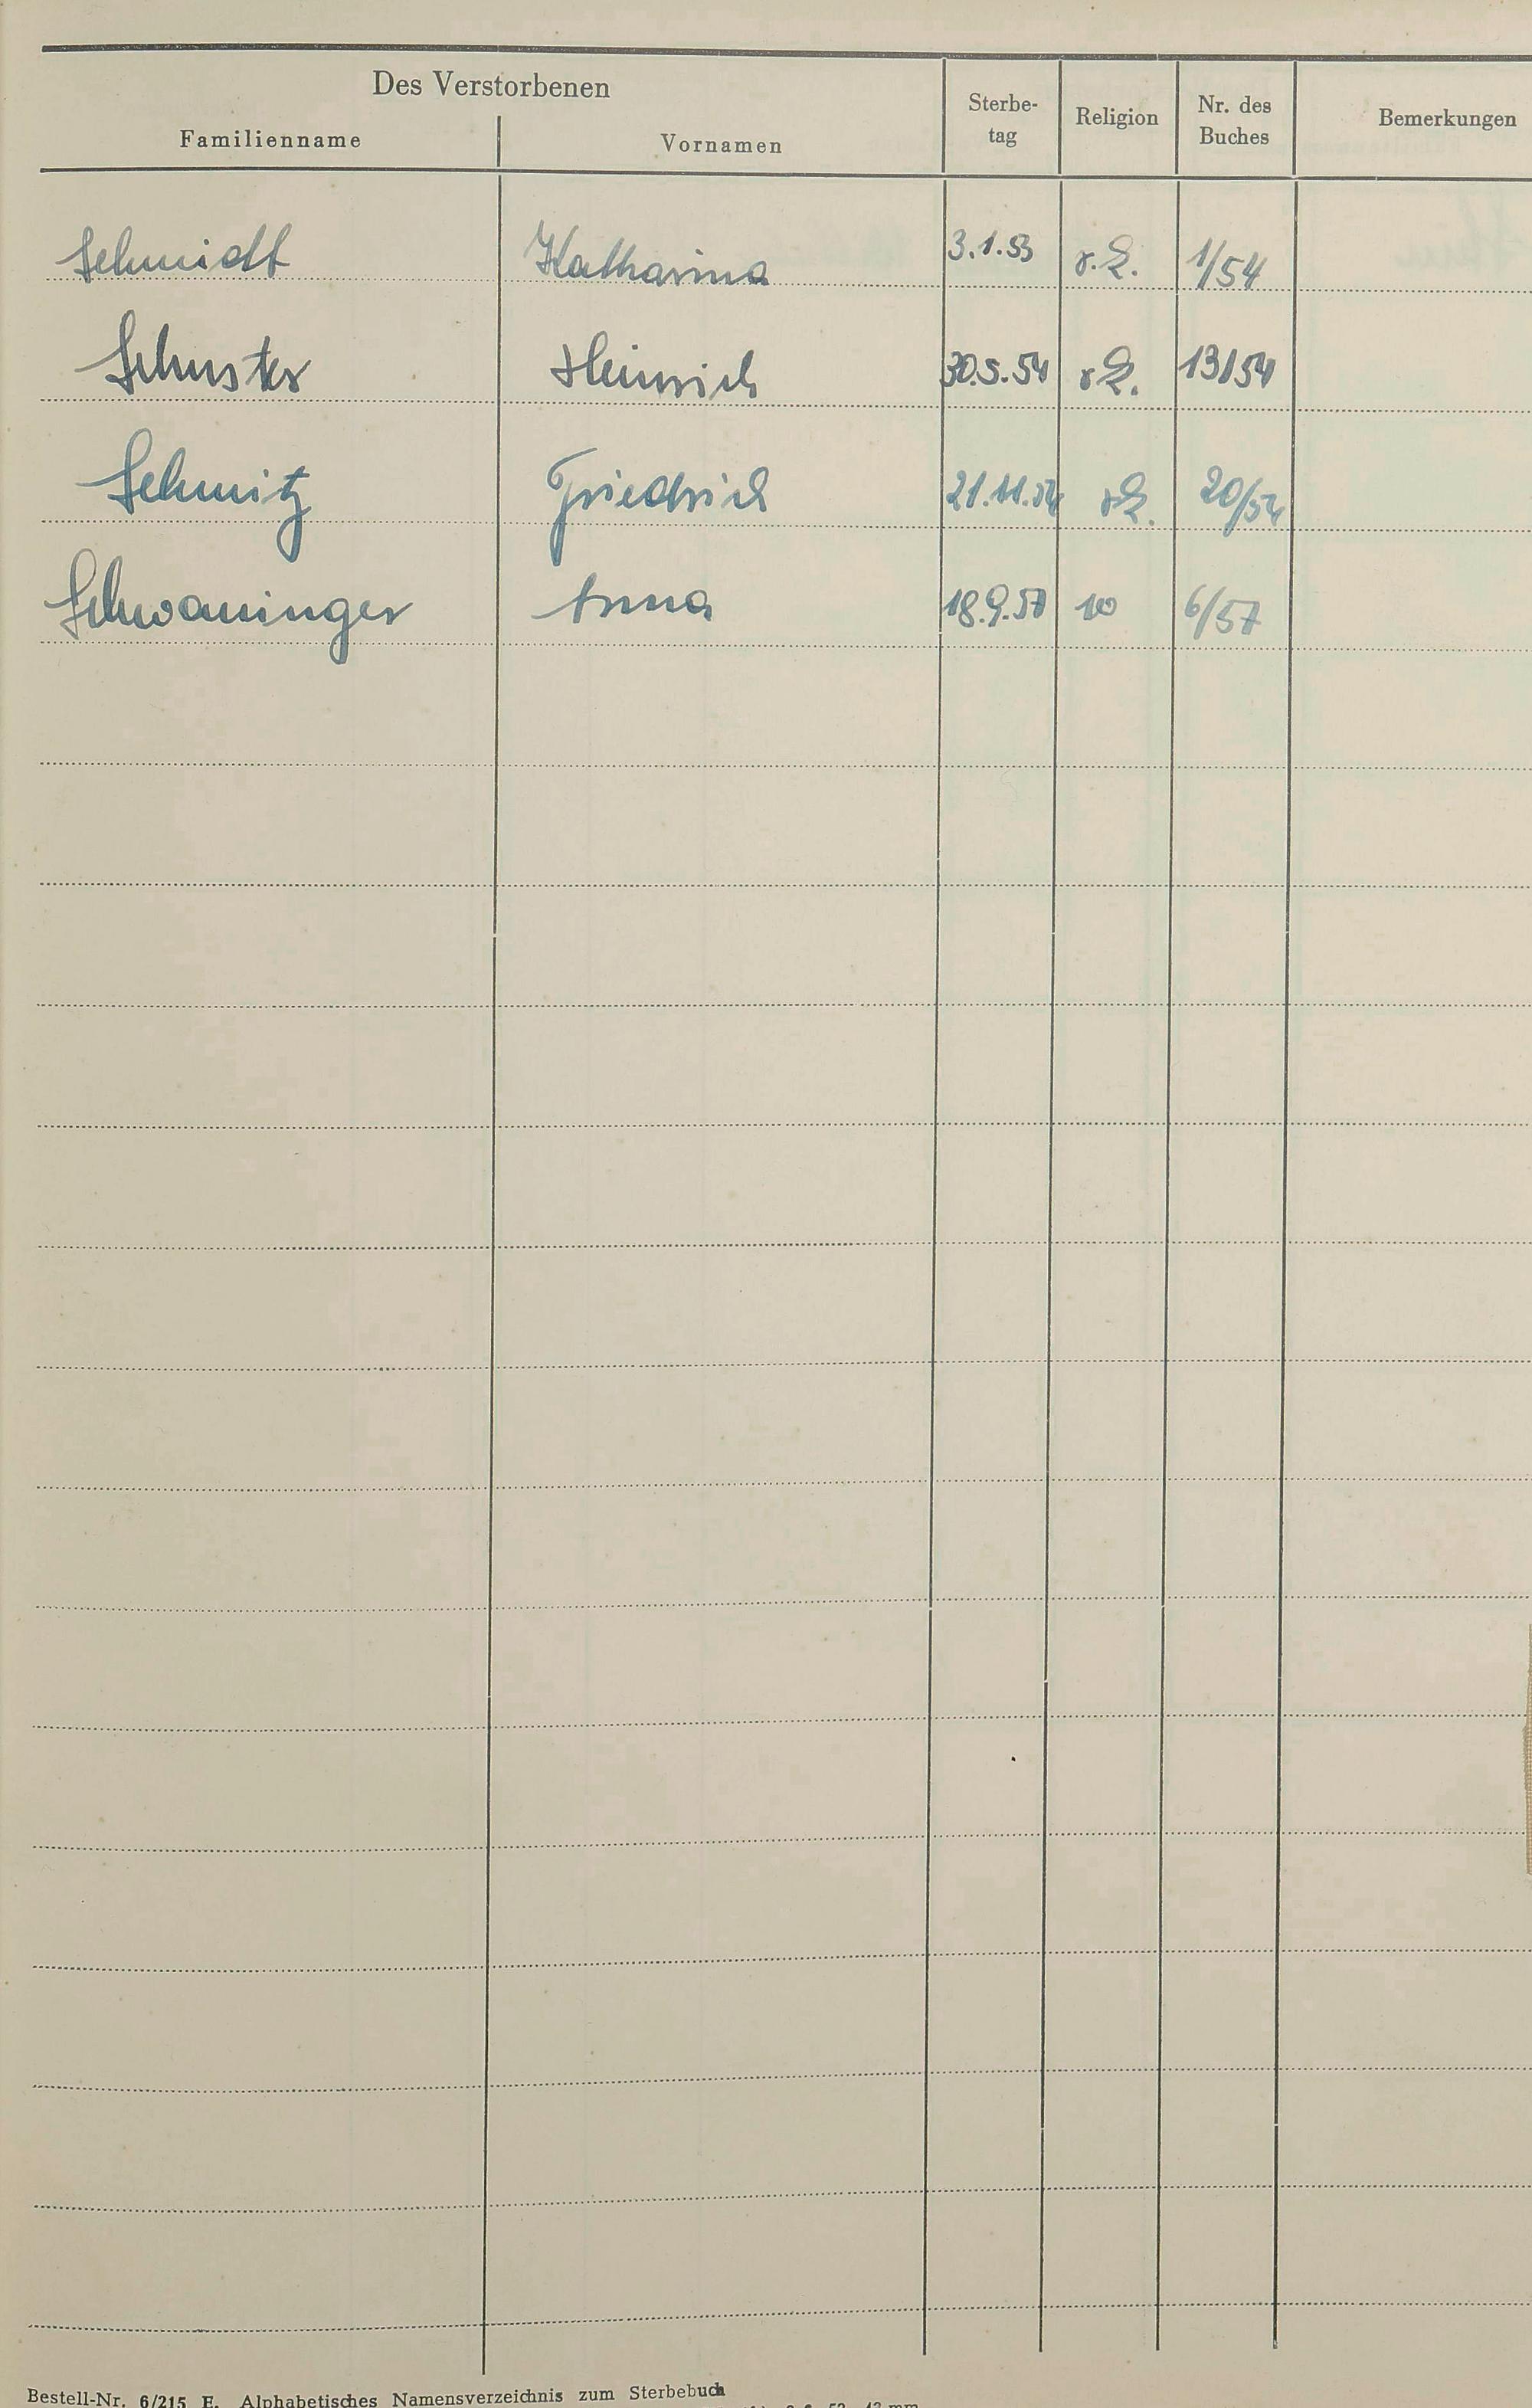 Des Verstorbenen
Familienname Vornamen Sterbe-tag Religion Nr. des Buches Bemerkungen
Schmidt Katharina 3.1.53 r.k. 1/54
Schuster Heinrich 30.5.54 rk. 13/54
Schmitz Friedrich 21.11.54 rk. 20/54
Schwaninger Anna 18.9.57 6/57
Bestell-Nr. 6/215 E. Alphabetisches Namensverzeichnis zum Sterbebuch